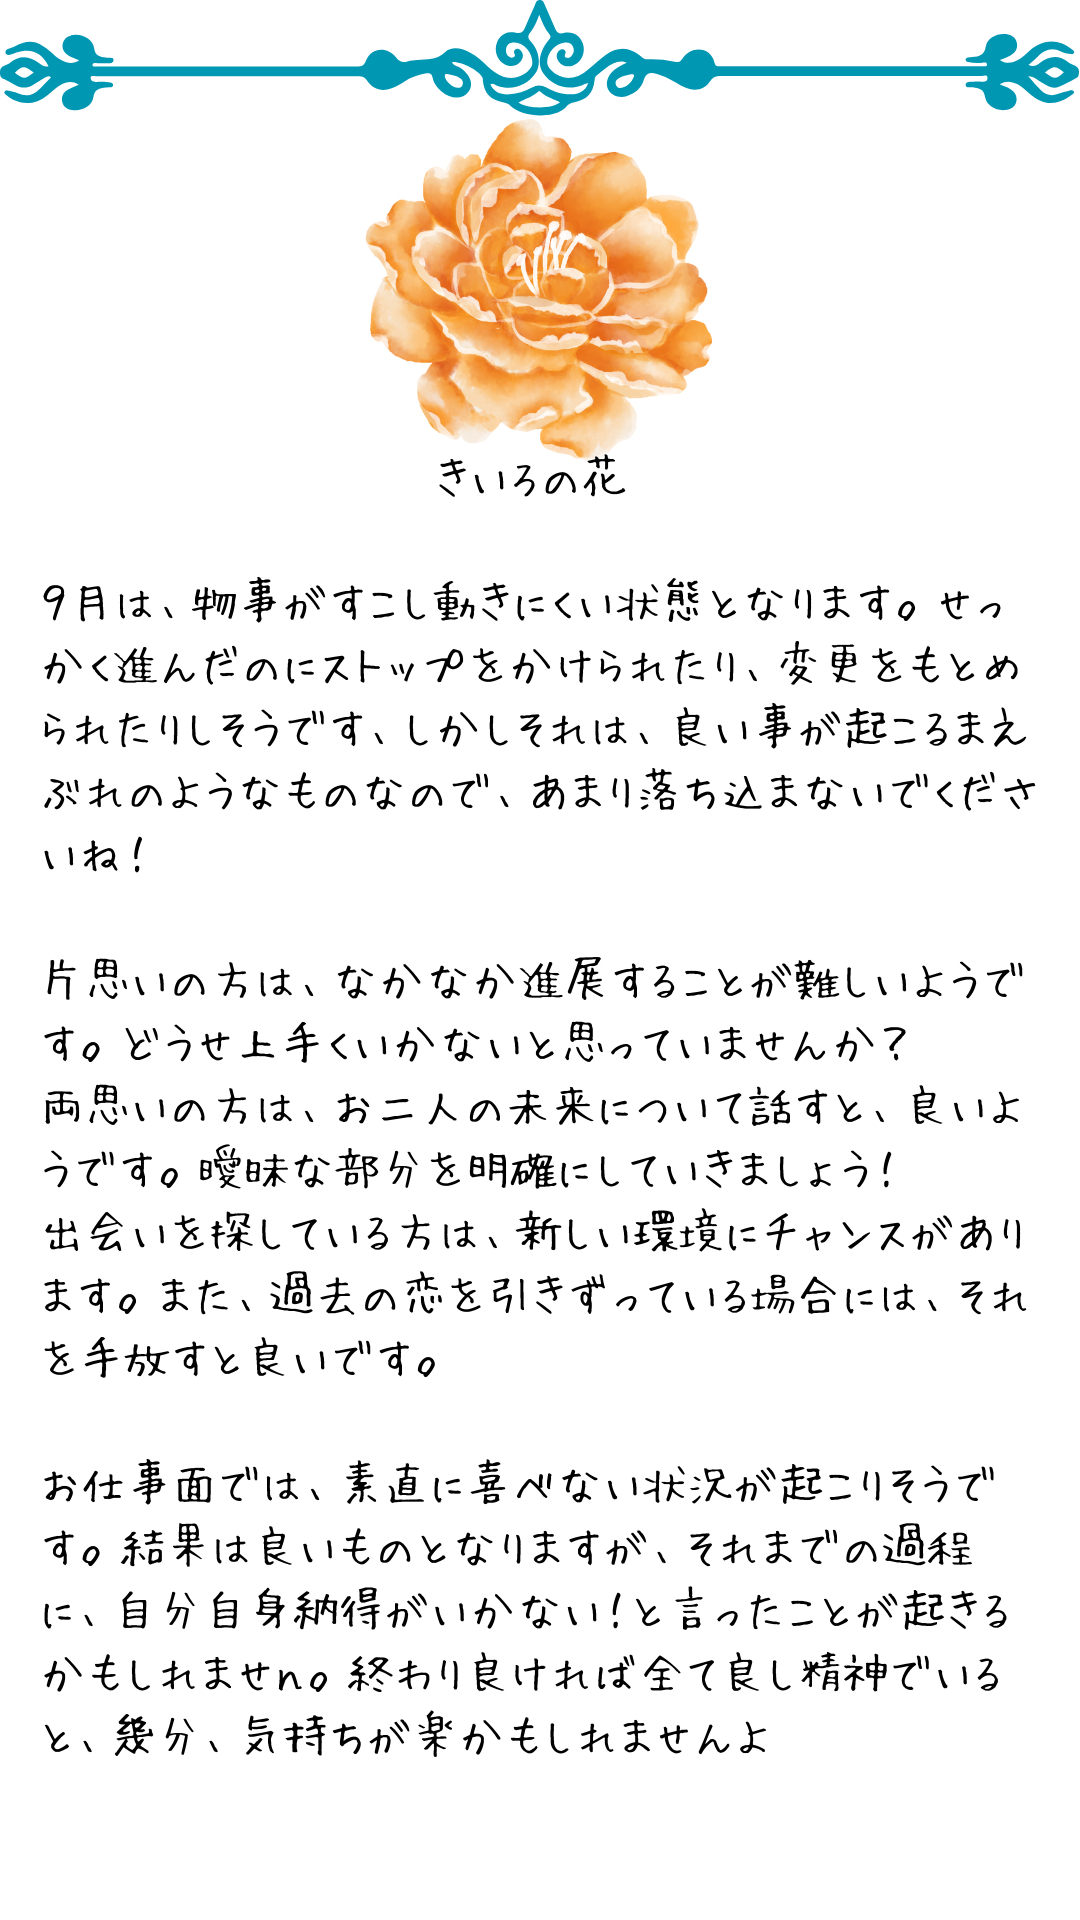 きいろの花
9月は、物事がすこし動きにくい状態となります。せっ
かく進んだのにストップをかけられたり、変更をもとめ
られたりしそうです、しかしそれは、良い事が起こるまえ
ぶれのようなものなので、あまり落ち込まないでくださ
いね！
片思いの方は、なかなか進展することが難しいようで
す。どうせ上手くいかないと思っていませんか？
両思いの方は、お二人の未来について話すと、良いよ
うです。曖昧な部分を明確にしていきましょう！
出会いを探している方は、新しい環境にチャンスがあり
ます。また、過去の恋を引きずっている場合には、それ
を手放すと良いです。
お仕事面では、素直に喜べない状況が起こりそうで
す。結果は良いものとなりますが、それまでの過程
に、自分自身納得がいかない！と言ったことが起きる
かもしれませn。終わり良ければ全て良し精神でいる
と、幾分、気持ちが楽かもしれませんよ